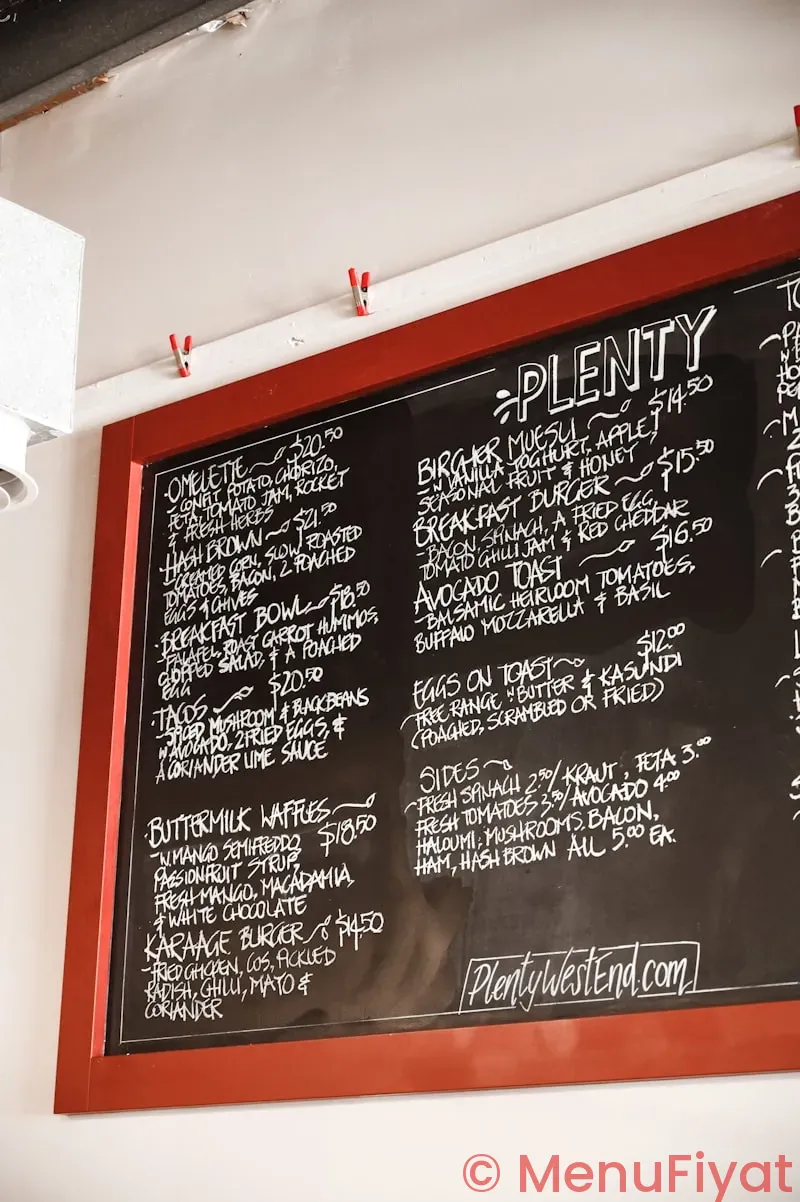 PLENTY
OMELETTE $20.50
- CONFIT POTATO, CHORIZO,
FETA, TOMATO JAM, ROCKET
& FRESH HERBS
HASH BROWN $21.50
- CREAMED CORN, SLOW ROASTED
TOMATOES, BACON, 2 POACHED
EGGS & CHIVES
BREAKFAST BOWL $18.50
- FALAFEL, ROAST CARROT HUMMOS,
CHOPPED SALAD, & A POACHED
EGG
TACOS $20.50
- SPICED MUSHROOM & BLACKBEANS
W AVOCADO, 2 FRIED EGGS, &
A CORIANDER LIME SAUCE
BUTTERMILK WAFFLES
$18.50
- W MANGO SEMIFREDDO,
PASSIONFRUIT SYRUP,
FRESH MANGO, MACADAMIA,
& WHITE CHOCOLATE
KARAAGE BURGER $14.50
- FRIED CHICKEN, COS, PICKLED
RADISH, CHILLI, MAYO &
CORIANDER
BIRCHER MUESLI $14.50
- W VANILLA YOGHURT, APPLE,
SEASONAL FRUIT & HONEY
BREAKFAST BURGER $15.50
- BACON, SPINACH, A FRIED EGG,
TOMATO CHILLI JAM & RED CHEDDAR
AVOCADO TOAST $16.50
- BALSAMIC HEIRLOOM TOMATOES,
BUFFALO MOZZARELLA & BASIL
EGGS ON TOAST $12.00
FREE RANGE W BUTTER & KASUNDI
(POACHED, SCRAMBLED OR FRIED)
SIDES
- FRESH SPINACH 2.50/ KRAUT, FETA 3.00
FRESH TOMATOES 3.50/ AVOCADO 4.00
HALOUMI, MUSHROOMS, BACON,
HAM, HASH BROWN ALL 5.00 EA.
PlentyWestEnd.com
© MenuFiyat